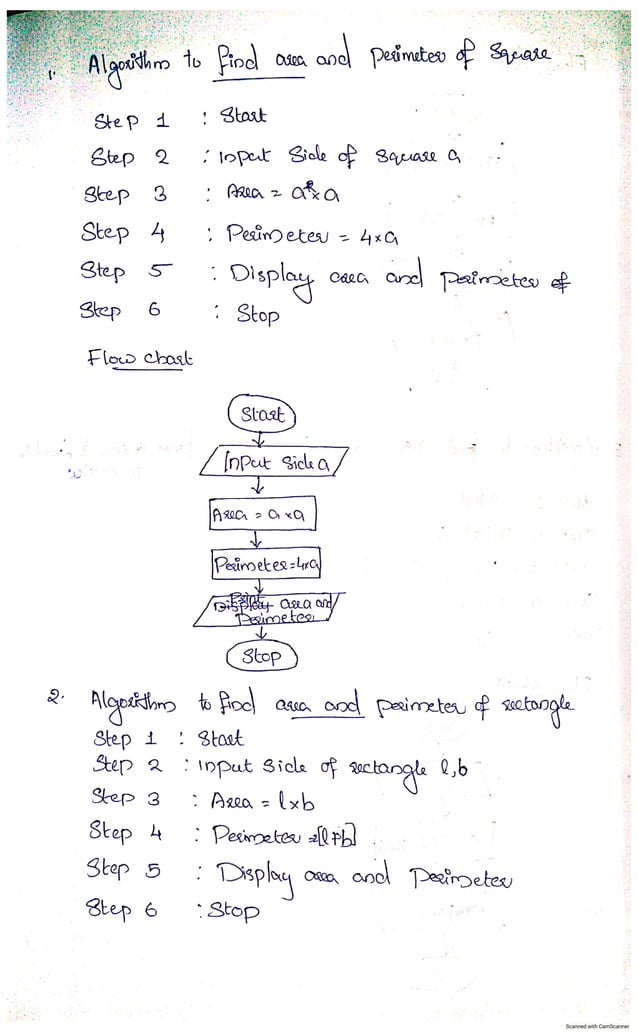 1. Algorithm to find area and perimeter of Square
Step 1 : Start
Step 2 : Input Side of Square a
Step 3 : Area = a×a
Step 4 : Perimeter = 4×a
Step 5 : Display area and perimeter of
Step 6 : Stop
Flow chart
Start
Input Side a
Area = a×a
Perimeter=4×a
Display area and
Perimeter
Stop
2. Algorithm to find area and perimeter of rectangle
Step 1 : Start
Step 2 : input Side of rectangle l,b
Step 3 : Area = l×b
Step 4 : Perimeter =[l+b]
Step 5 : Display area and Perimeter
Step 6 : Stop
Scanned with CamScanner